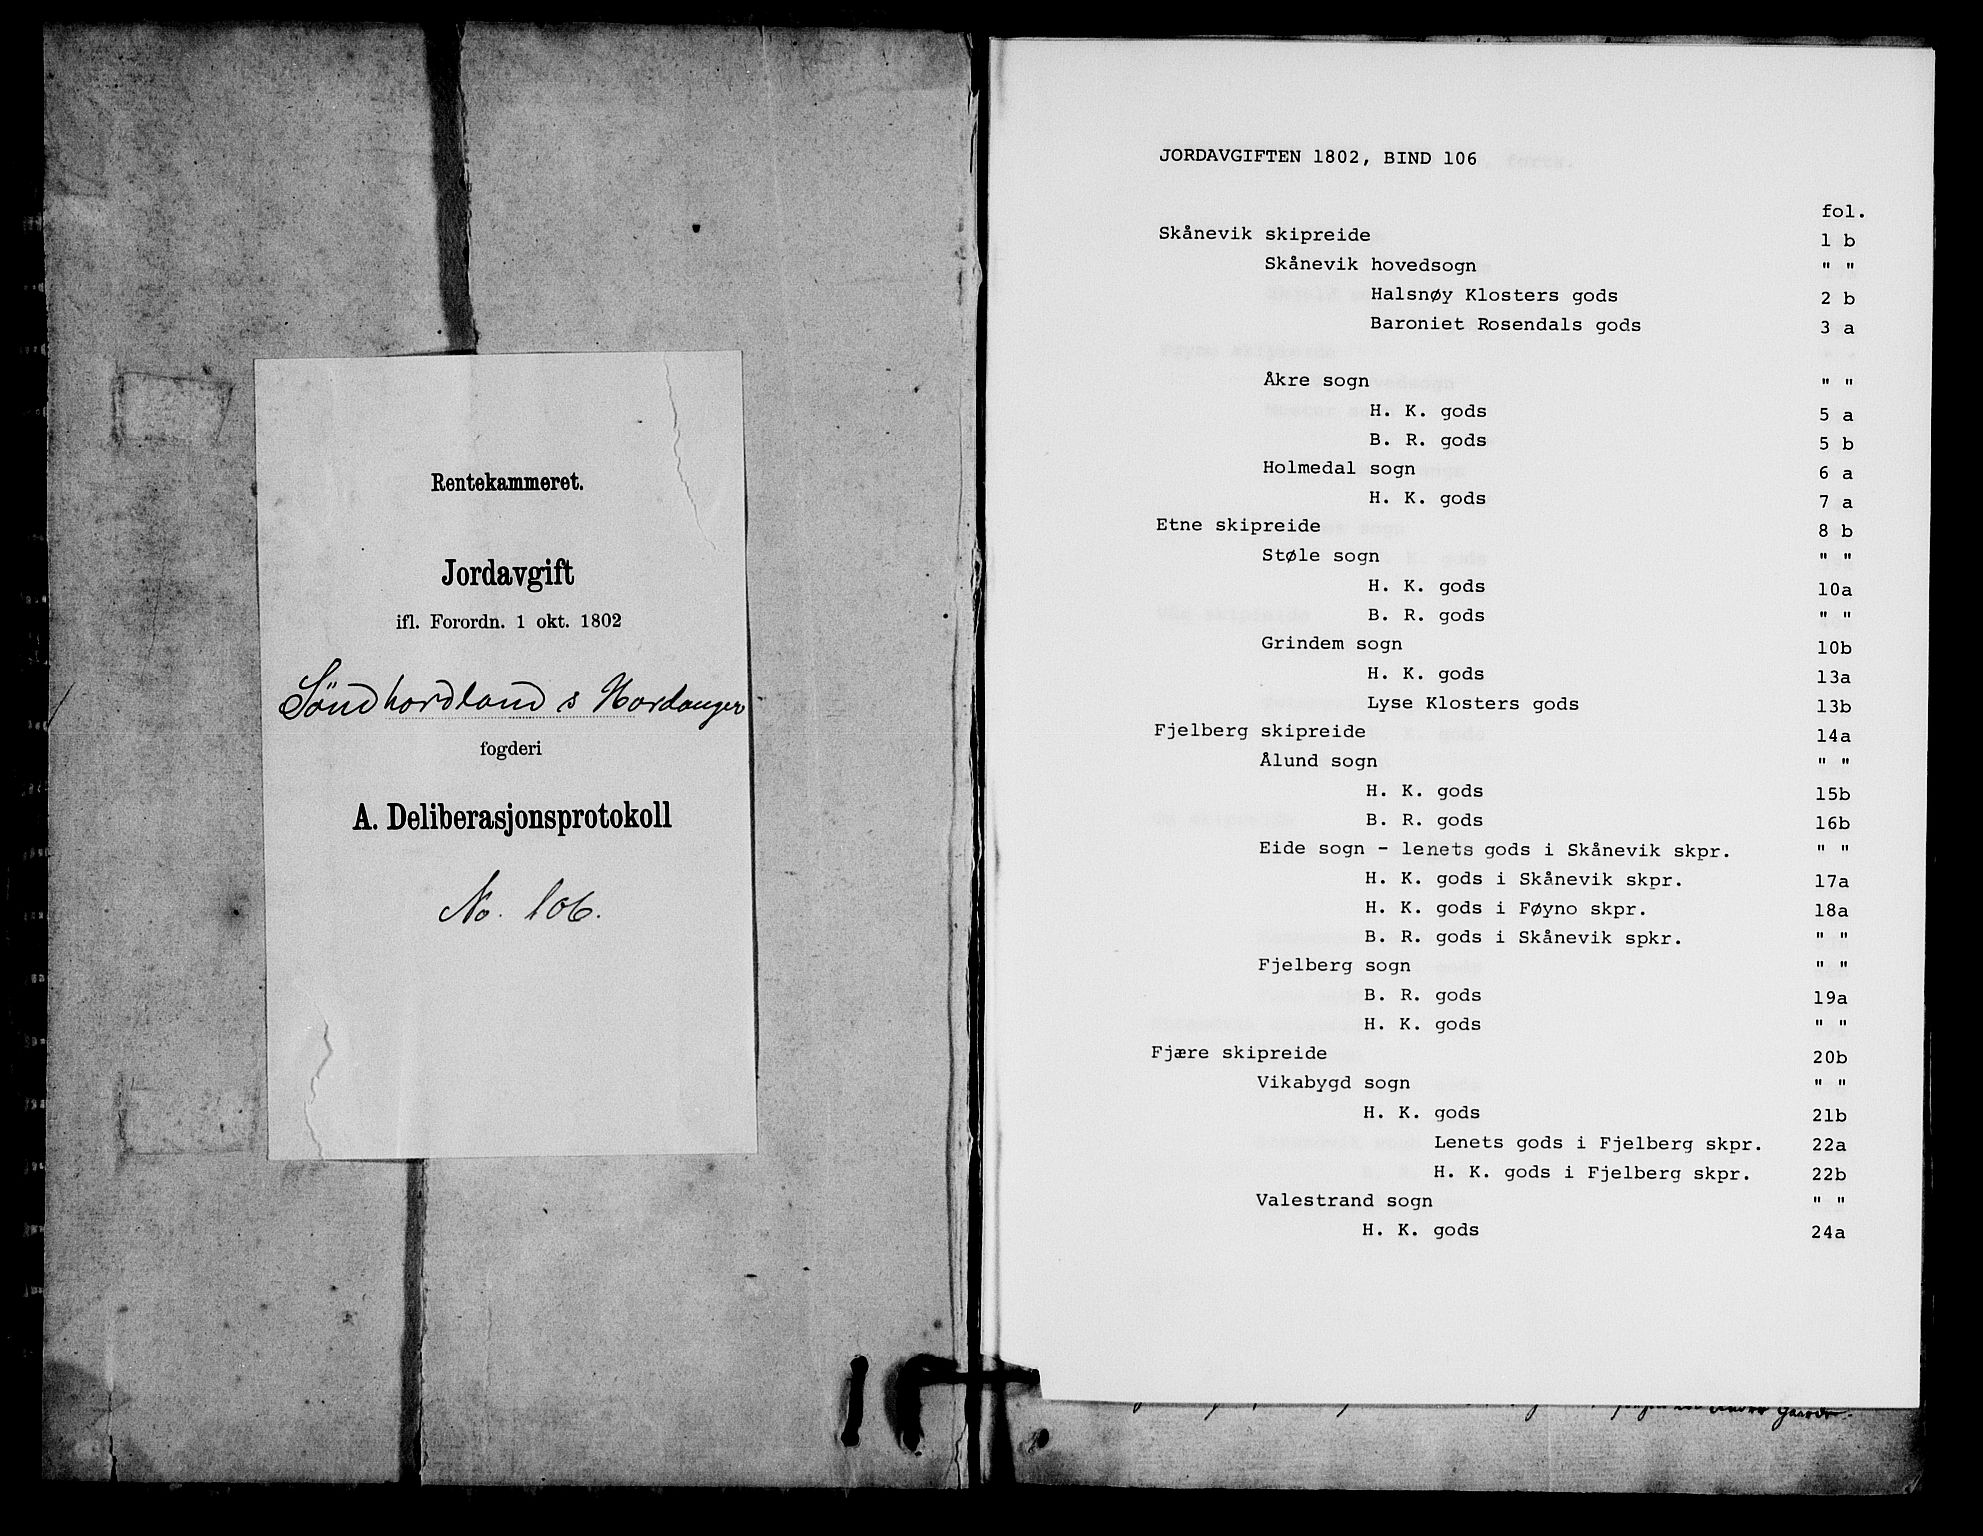 Rentekammeret.
Jordavgift
ifl. Forordn. 1 okt. 1802
Söndhordland s Hardanger
fogderi
A. Deliberasjonsprotokoll
No. 106.
JORDAVGIFTEN 1802, BIND 106
fol.
Skånevik skipreide 1 b
Skånevik hovedsogn " "
Halsnøy Klosters gods 2 b
Baroniet Rosendals gods 3 a
Åkre sogn " "
H. K. gods 5 a
B. R. gods 5 b
Holmedal sogn 6 a
H. K. gods 7 a
Etne skipreide 8 b
Støle sogn " "
H. K. gods 10a
B. R. gods " "
Grindem sogn 10b
H. K. gods 13a
Lyse Klosters gods 13b
Fjelberg skipreide 14a
Ålund sogn " "
H. K. gods 15b
B. R. gods 16b
Eide sogn - lenets gods i Skånevik skpr. " "
H. K. gods i Skånevik skpr. 17a
H. K. gods i Føyno skpr. 18a
B. R. gods i Skånevik spkr. " "
Fjelberg sogn " "
B. R. gods 19a
H. K. gods " "
Fjære skipreide 20b
Vikabygd sogn " "
H. K. gods 21b
Lenets gods i Fjelberg skpr. 22a
H. K. gods i Fjelberg skpr. 22b
Valestrand sogn " "
H. K. gods 24a